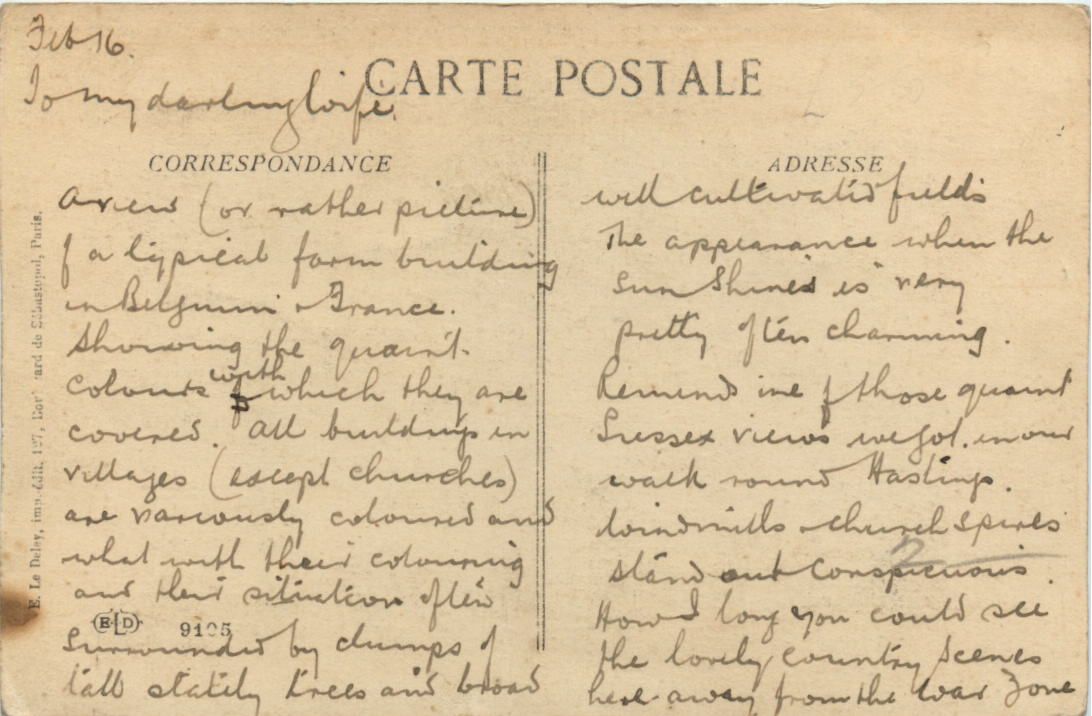 Feb 16.
To my darling wife.
CARTE POSTALE
CORRESPONDANCE
A view (or rather picture)
of a typical farm building
in Belgium & France.
Showing the quaint
colours with which they are
covered. All buildings in
villages (except churches)
are variously coloured and
what with their colouring
and their situation often
surrounded by clumps of
tall stately trees and broad
ADRESSE
well cultivated fields
The appearance when the
sun shines is very
pretty often charming.
Reminds me of those quaint
Sussex views we got in our
walk round Hastings.
Windmills & church spires
stand out conspicuous.
How I long you could see
the lovely country scenes
here away from the war zone
E. Le Deley, imp.-édit., 127, Boulevard de Sébastopol, Paris.
ELD